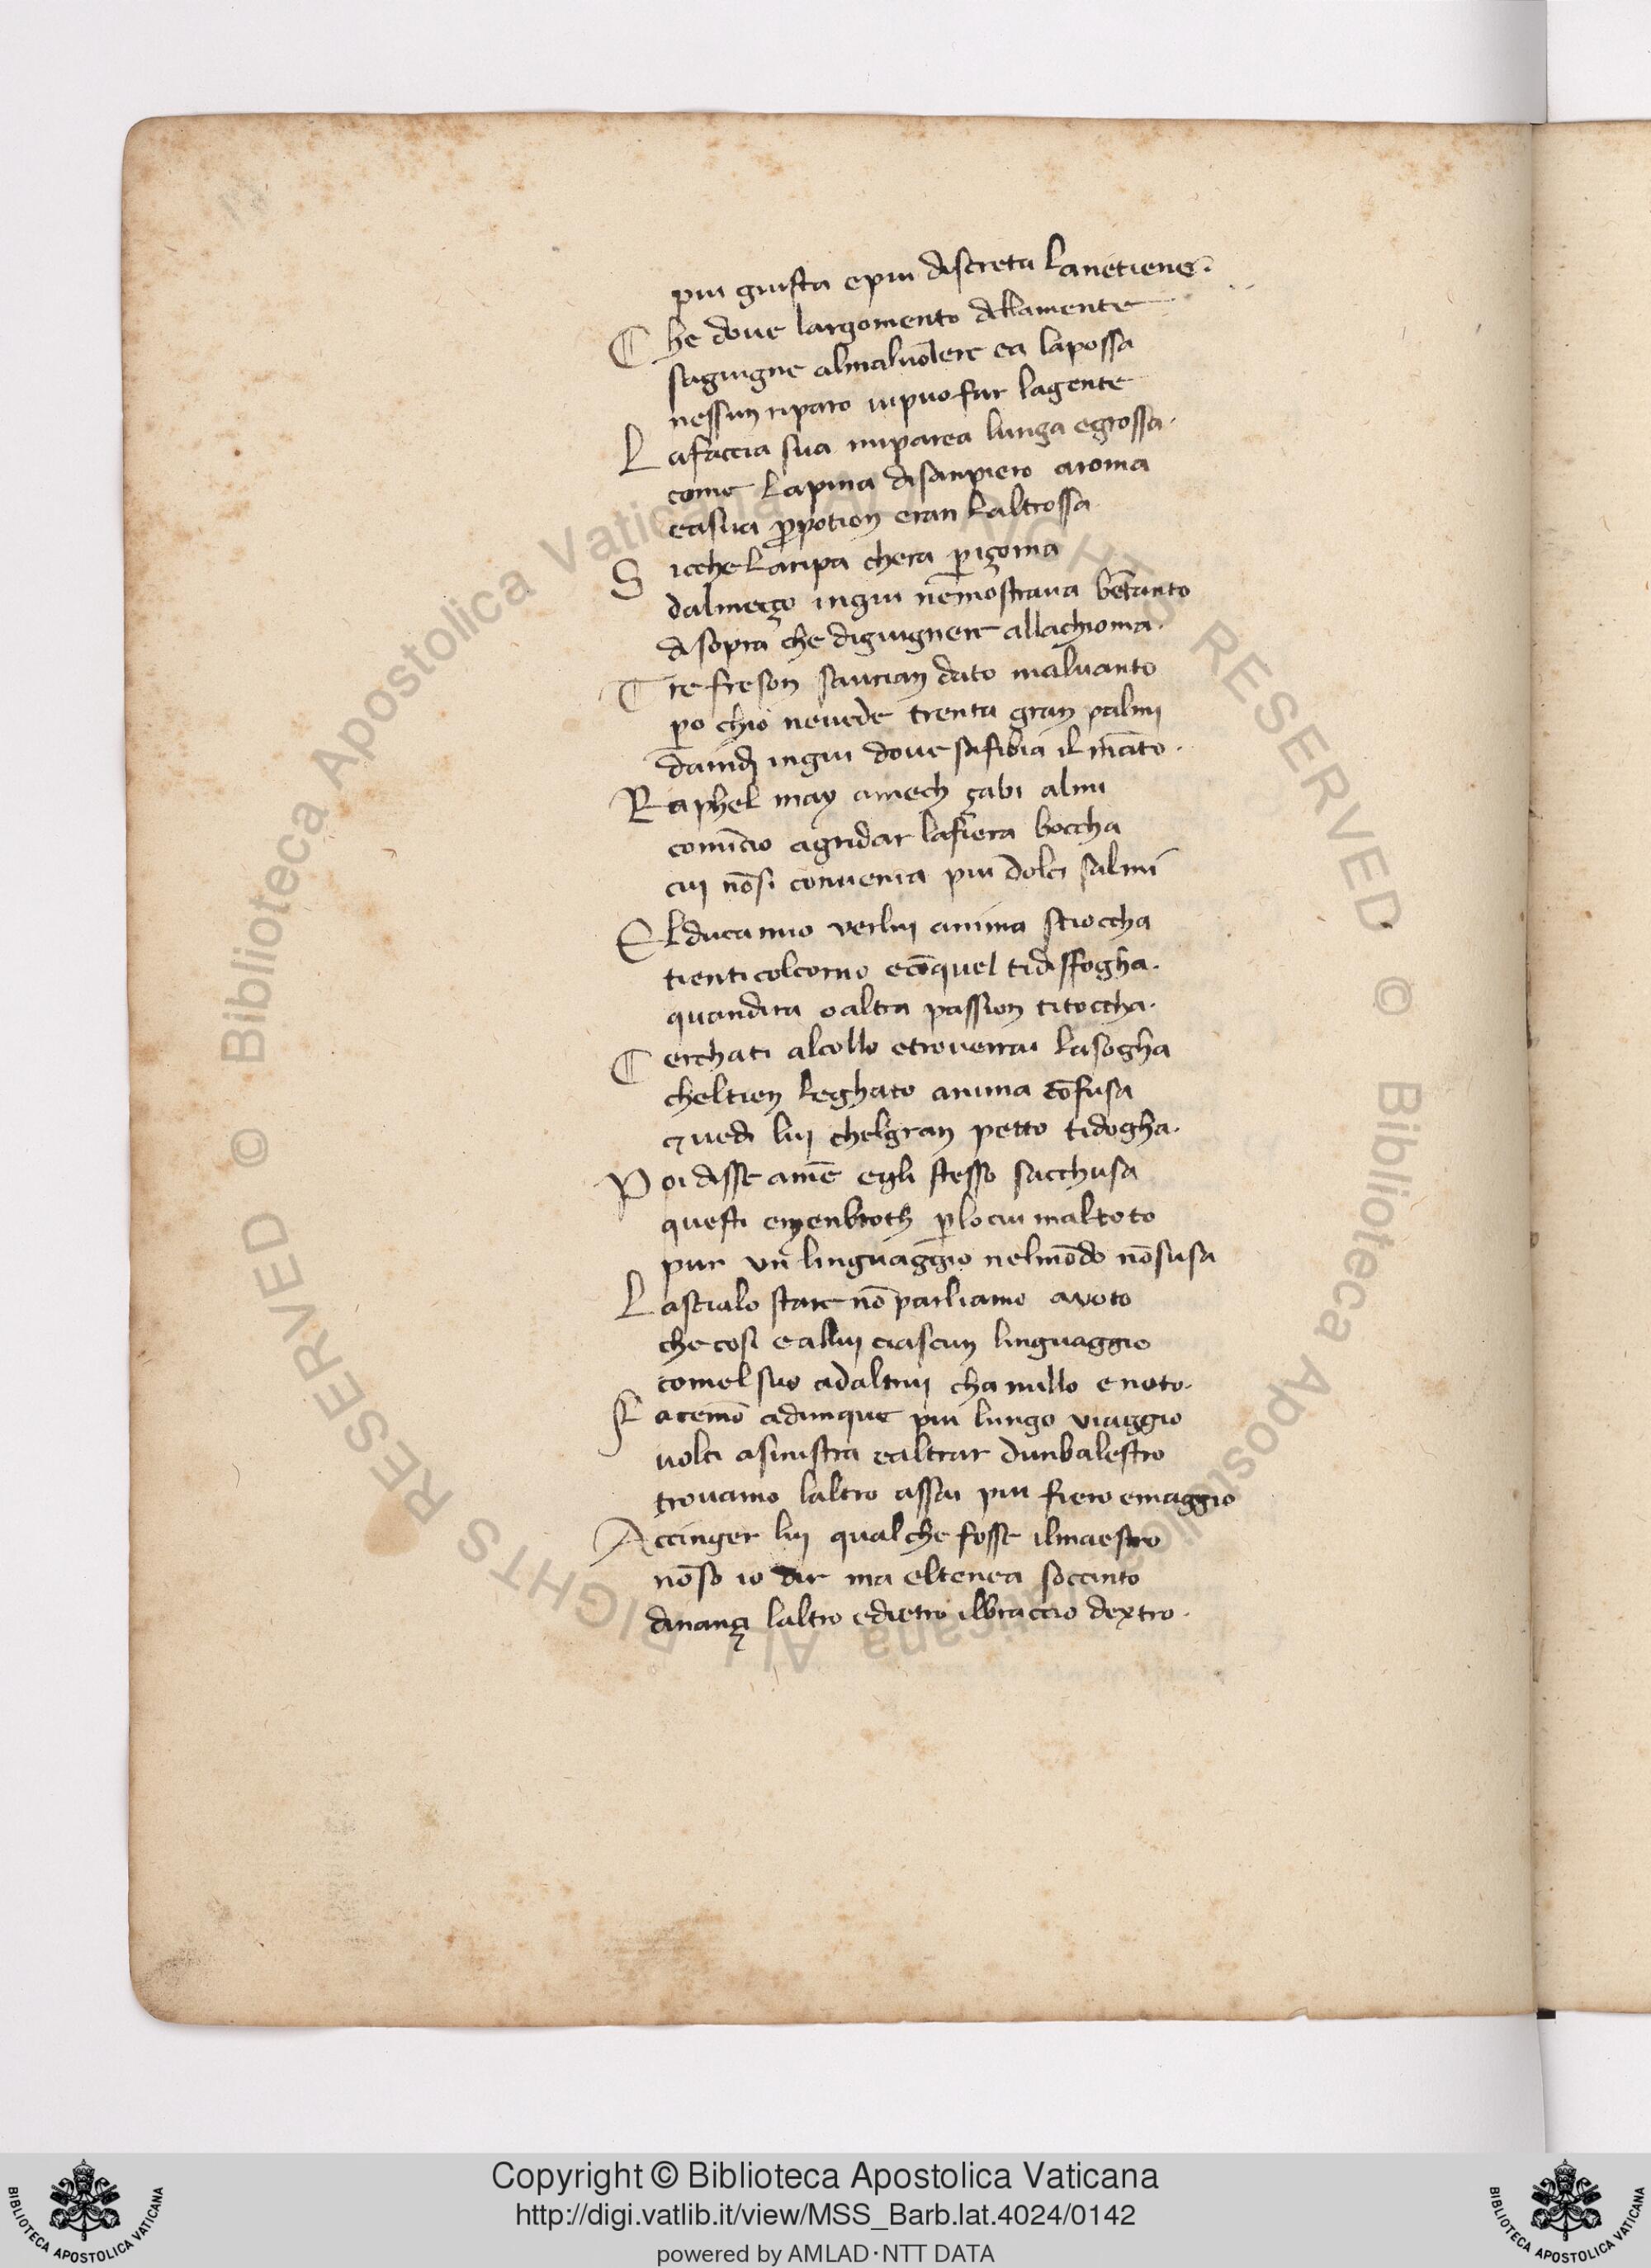 piu giusta epiu discreta lanetiene.
C he doue largomento dellamente
sagiugne almaluolere ea lapossa
nessun riparo uipuo far lagente
L afaccia sua miparea lunga egrossa.
come lapina disanpiero aroma
easua ꝓpotion eran laltrossa
S icche laripa chera ꝑiçoma
dalmeçço ingiu nemostraua bētanto
di sopra che digiugnere allachioma.
T re freson saurian dato maluanto
ꝑo chio neuede trenta gran palmi
dainḍ ingiu doue safibia il māto.
R aphel may amech çabi almi
comīcio agridar lafiera boccha
cuj nōsi conuenia piu dolci salmi
E lduca mio verluj anima scioccha
tienti colcorno ecōquel tidisfogha.
quandira oaltra passion titoccha.
C erchati alcollo etrouerrai lasogha
cheltien leghato anima cōfusa
ꝫ vedi luj chelgran petto tidogha.
P oi disse amē egli stesso sacchusa
questi enyenbroth ꝑlocui malcoto
pur vn linguaggio nelmōdo nōsusa
L ascialo stare nō parliamo avoto
che cosi ealluj ciascun linguaggio
comel suo adaltruj cha nullo enoto.
F acemo adunque piu lungo viaggio
uolti asinistra ealtrar dunbalestro
trouamo laltro assai piu fiero emaggio
A ccinger luj qual che fosse ilmaestro
nōso io dir ma eltenea soccinto
dinançi laltro edietro ilbraccio dextro.
© Biblioteca Apostolica Vaticana ALL RIGHTS RESERVED © Biblioteca Apostolica Vaticana ALL RIGHTS RESERVED
Copyright © Biblioteca Apostolica Vaticana
http://digi.vatlib.it/view/MSS_Barb.lat.4024/0142
powered by AMLAD·NTT DATA
BIBLIOTECA APOSTOLICA VATICANA
BIBLIOTECA APOSTOLICA VATICANA